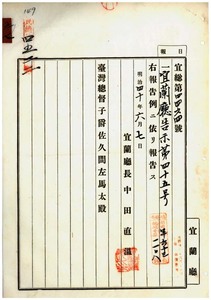 報告
宜總第四四六四號
一宜蘭廳告示第四十五号
右報告例ニ依リ報告ス
明治四十年六月七日
宜蘭廳長中田直溫
臺灣總督子爵佐久間左馬太殿
宜蘭廳